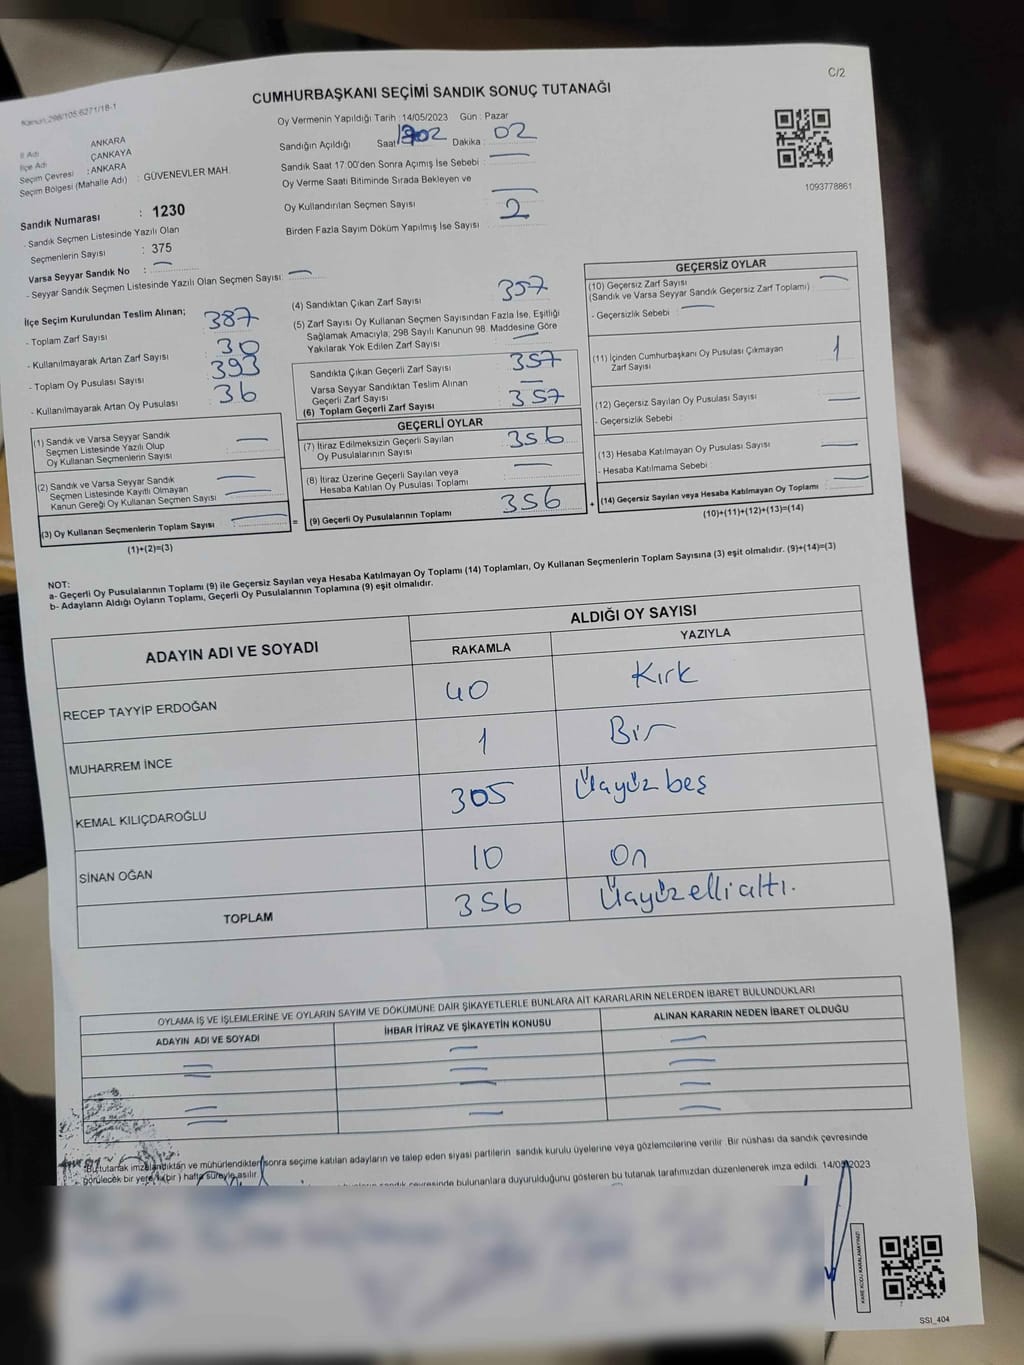 C/2
Kanun:298/105,6271/18-1
CUMHURBAŞKANI SEÇİMİ SANDIK SONUÇ TUTANAĞI
İl Adı ANKARA
İlçe Adı ÇANKAYA
Seçim Çevresi : ANKARA
Seçim Bölgesi (Mahalle Adı) : GÜVENEVLER MAH.
Sandık Numarası : 1230
- Sandık Seçmen Listesinde Yazılı Olan
Seçmenlerin Sayısı : 375
Varsa Seyyar Sandık No : —
- Seyyar Sandık Seçmen Listesinde Yazılı Olan Seçmen Sayısı: —
Oy Vermenin Yapıldığı Tarih : 14/05/2023 Gün : Pazar
Sandığın Açıldığı Saat Dakika : 02
Sandık Saat 17:00'den Sonra Açımış İse Sebebi : —
Oy Verme Saati Bitiminde Sırada Bekleyen ve
Oy Kullandırılan Seçmen Sayısı —
Birden Fazla Sayım Döküm Yapılmış İse Sayısı : 2
1093778861
İlçe Seçim Kurulundan Teslim Alınan;
- Toplam Zarf Sayısı : 387
- Kullanılmayarak Artan Zarf Sayısı : 30
- Toplam Oy Pusulası Sayısı : 393
- Kullanılmayarak Artan Oy Pusulası : 36
(1) Sandık ve Varsa Seyyar Sandık
Seçmen Listesinde Yazılı Olup
Oy Kullanan Seçmenlerin Sayısı : —
(2) Sandık ve Varsa Seyyar Sandık
Seçmen Listesinde Kayıtlı Olmayan
Kanun Gereği Oy Kullanan Seçmen Sayısı : —
(3) Oy Kullanan Seçmenlerin Toplam Sayısı : — =
(1)+(2)=(3)
(4) Sandıktan Çıkan Zarf Sayısı : 357
(5) Zarf Sayısı Oy Kullanan Seçmen Sayısından Fazla İse, Eşitliği
Sağlamak Amacıyla; 298 Sayılı Kanunun 98. Maddesine Göre
Yakılarak Yok Edilen Zarf Sayısı : —
Sandıkta Çıkan Geçerli Zarf Sayısı : 357
Varsa Seyyar Sandıktan Teslim Alınan
Geçerli Zarf Sayısı : —
(6) Toplam Geçerli Zarf Sayısı : 357
GEÇERLİ OYLAR
(7) İtiraz Edilmeksizin Geçerli Sayılan
Oy Pusulalarının Sayısı : 356
(8) İtiraz Üzerine Geçerli Sayılan veya
Hesaba Katılan Oy Pusulası Toplamı : —
(9) Geçerli Oy Pusulalarının Toplamı : 356 +
GEÇERSİZ OYLAR
(10) Geçersiz Zarf Sayısı : —
(Sandık ve Varsa Seyyar Sandık Geçersiz Zarf Toplamı)
- Geçersizlik Sebebi : —
(11) İçinden Cumhurbaşkanı Oy Pusulası Çıkmayan
Zarf Sayısı : 1
(12) Geçersiz Sayılan Oy Pusulası Sayısı : —
- Geçersizlik Sebebi :
(13) Hesaba Katılmayan Oy Pusulası Sayısı : —
- Hesaba Katılmama Sebebi :
(14) Geçersiz Sayılan veya Hesaba Katılmayan Oy Toplamı : —
(10)+(11)+(12)+(13)=(14)
NOT:
a- Geçerli Oy Pusulalarının Toplamı (9) ile Geçersiz Sayılan veya Hesaba Katılmayan Oy Toplamı (14) Toplamları, Oy Kullanan Seçmenlerin Toplam Sayısına (3) eşit olmalıdır. (9)+(14)=(3)
b- Adayların Aldığı Oyların Toplamı, Geçerli Oy Pusulalarının Toplamına (9) eşit olmalıdır.
ADAYIN ADI VE SOYADI ALDIĞI OY SAYISI
RAKAMLA YAZIYLA
RECEP TAYYİP ERDOĞAN 40 Kırk
MUHARREM İNCE 1 Bir
KEMAL KILIÇDAROĞLU 305 Üçyüz beş
SİNAN OĞAN 10 On
TOPLAM 356 Üçyüz elli altı.
OYLAMA İŞ VE İŞLEMLERİNE VE OYLARIN SAYIM VE DÖKÜMÜNE DAİR ŞİKAYETLERLE BUNLARA AİT KARARLARIN NELERDEN İBARET BULUNDUKLARI
ADAYIN ADI VE SOYADI İHBAR İTİRAZ VE ŞİKAYETİN KONUSU ALINAN KARARIN NEDEN İBARET OLDUĞU
Bu tutanak imzalandıktan ve mühürlendikten sonra seçime katılan adayların ve talep eden siyasi partilerin sandık kurulu üyelerine veya gözlemcilerine verilir. Bir nüshası da sandık çevresinde
görülecek bir yere 1 (bir) hafta süreyle asılır.
sandık çevresinde bulunanlara duyurulduğunu gösteren bu tutanak tarafımızdan düzenlenerek imza edildi. 14/05/2023
KARE KODU KARALAMAYINIZ!
SSI_404